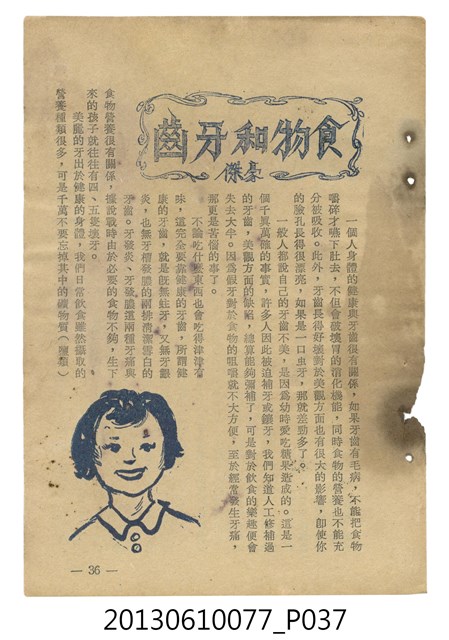 食物和牙齒
豪傑
一個人身體的健康與牙齒很有關係,如果牙齒有毛病,不能把食物
嚼碎才嚥下肚去,不但會破壞胃的消化機能,同時食物的營養也不能充
分被吸收。此外,牙齒長得好壞對於美觀方面也有很大的影響,即使你
的臉孔長得很漂亮,如果是一口虫牙,那就差勁多了。
一般人都說自己的牙齒不美,是因爲幼時愛吃糖果造成的。這是一
個千眞萬確的事實,許多人因此被迫補牙或鑲牙,我們知道人工修補過
的牙齒,美觀方面的缺陷,總算能夠彌補了,可是對於飲食的樂趣便會
失去大半。因爲假牙對於食物的咀嚼就不大方便,至於經常發生牙痛,
那更是苦惱的事了。
不論吃什麼東西也會吃得津津有
味,這完全要靠健康的牙齒,所謂健
康的牙齒,就是旣無蛀牙,又無牙齦
炎,也無牙槽發膿的兩排清潔雪白的
牙齒。牙發炎、牙發膿這兩種牙痛與
食物營養很有關係,據說戰時由於必要的食物不夠,生下
來的孩子就往往有四、五隻壞牙。
美麗的牙出於健康的身體,我們日常飲食雖然攝取的
營養種類很多,可是千萬不要忘掉其中的礦物質(鹽類)
— 36 —
20130610077_P037